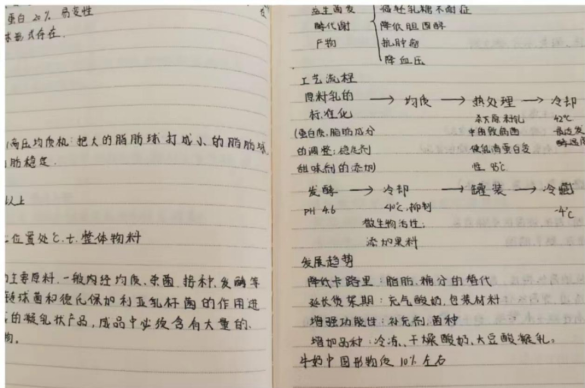 蛋白 20% 易变性
体形式存在.
(高压均质机: 把大的脂肪球打成小的脂肪球,
肪稳定.
以上
位置处℃. 十. 整体物料
主要原料. 一般内经均质、杀菌、接种、发酵等
链球菌和德氏保加利亚乳杆菌的作用进
的凝乳状产品, 成品中必须含有大量的.
益生菌发 缓轻乳糖不耐症
酵代谢 降低胆固醇
产物 抗肿瘤
降血压
工艺流程
原料乳的 → 均质 → 热处理 → 冷却
标准化 杀灭原料乳 42℃
(蛋白质、脂肪成分 中的致病菌 最适发
的调整; 稳定剂 使乳清蛋白变 酵温度
甜味剂的添加) 性 85℃
发酵 → 冷却 → 罐装 → 冷藏
pH 4.6 4℃. 抑制 4℃
微生物活性;
添加果料
发展趋势
降低卡路里: 脂肪、糖分的替代
延长货架期: 充气酸奶, 包装材料
增强功能性: 补充剂, 菌种
增加品种: 冷冻、干燥酸奶, 大豆酸凝乳.
牛奶中固形物低 10% 左右